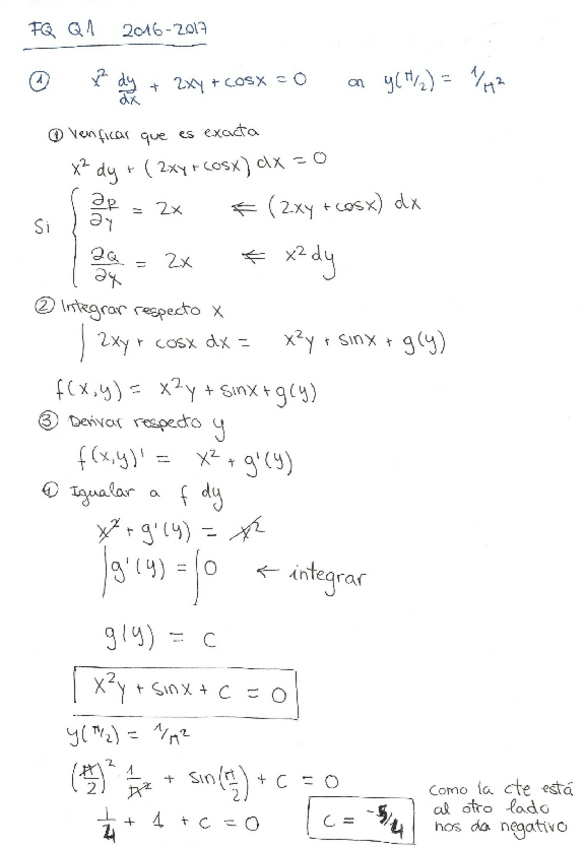 FQ Q1 2016-2017
① x² dy/dx + 2xy + cosx = 0 on y(π/2) = 1/π²
① Verificar que es exacta
x² dy + (2xy + cosx) dx = 0
Si
∂P/∂y = 2x ⇐ (2xy + cosx) dx
∂Q/∂x = 2x ⇐ x² dy
② Integrar respecto x
∫ 2xy + cosx dx = x²y + sinx + g(y)
f(x,y) = x²y + sinx + g(y)
③ Derivar respecto y
f(x,y)' = x² + g'(y)
④ Igualar a f dy
x² + g'(y) = x²
∫g'(y) = ∫0 ← integrar
g(y) = c
x²y + sinx + c = 0
y(π/2) = 1/π²
(π/2)² 1/π² + sin(π/2) + c = 0
1/4 + 1 + c = 0
c = -5/4
como la cte está
al otro lado
nos da negativo